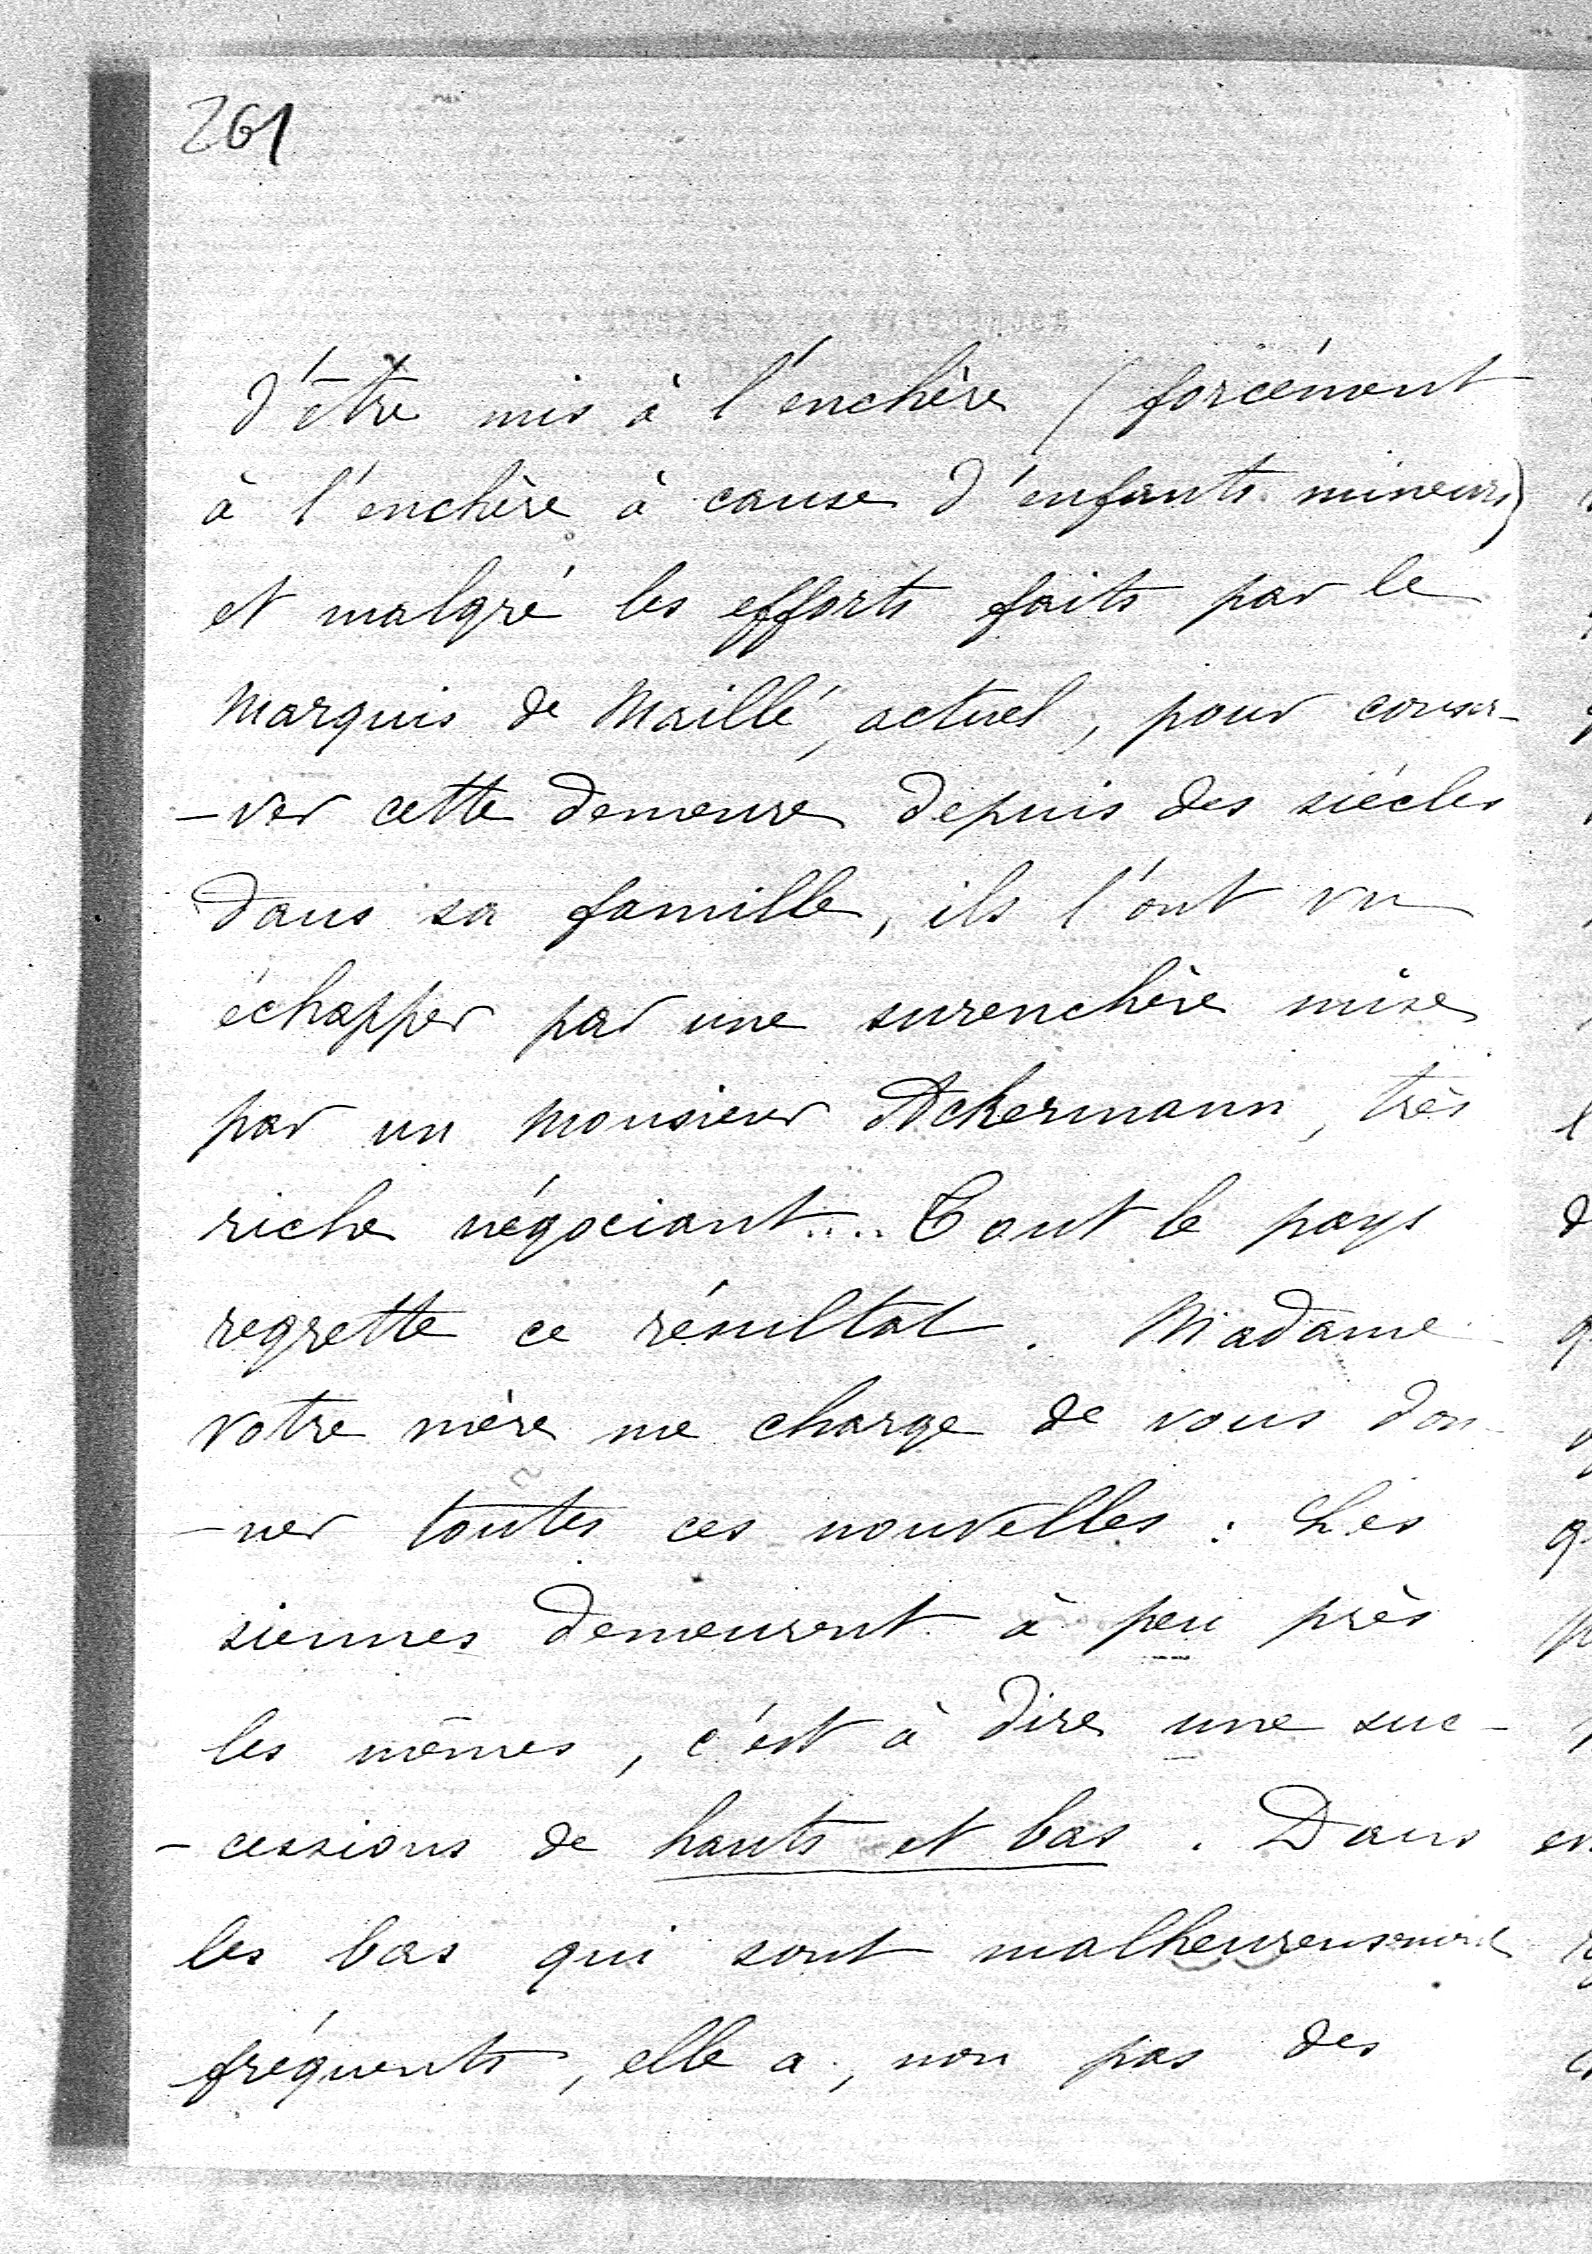 261
d'être mis à l'enchère (forcément
à l'enchère à cause d'enfants mineurs)
et malgré les efforts faits par le
Marquis de Maillé, actuel, pour conser-
-ver cette demeure depuis des siècles
dans sa famille, ils l'ont vu
échapper par une surenchère mise
par un Monsieur Ackermann, très
riche négociant... Tout le pays
regrette ce résultat. Madame
votre mère me charge de vous don-
-ner toutes ces nouvelles : Les
siennes demeurent à peu près
les mêmes, c'est à dire une suc-
-cessions de hauts et bas. Dans
les bas qui sont malheureusement
fréquents, elle a, non pas des